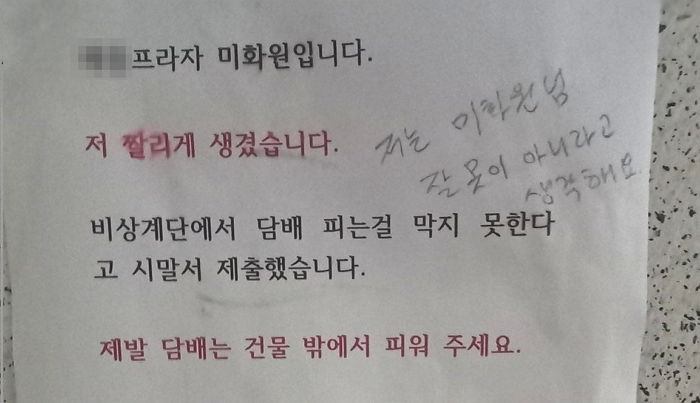 프라자 미화원입니다.
저 짤리게 생겼습니다.
저는 미화원님
잘못이 아니라고
생각해요
비상계단에서 담배 피는걸 막지 못한다
고 시말서 제출했습니다.
제발 담배는 건물 밖에서 피워 주세요.